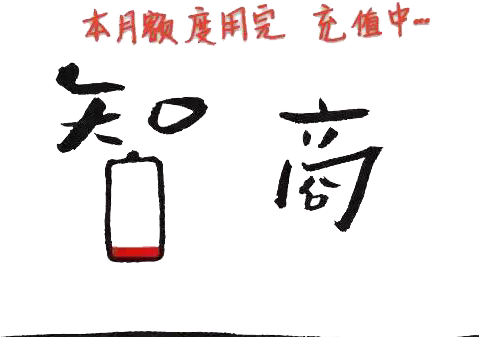 本月额度用完 充值中...
智商